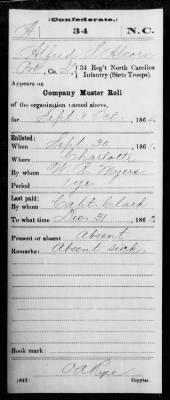 (Confederate.)
A 34 N.C.
Alfred N. Alcorn
Pvt, Co. G, 34 Reg't North Carolina
Infantry (State Troops).
Appears on
Company Muster Roll
of the organization named above,
for Sept & Oct, 186
Enlisted:
When Sept. 30, 186
Where Charlotte
By whom W. R. Myers
Period 1 yr.
Last paid:
By whom Capt. Clark
To what time Dec. 31, 186
Present or absent Absent
Remarks: Absent sick.
Book mark:
(642) Copyist.